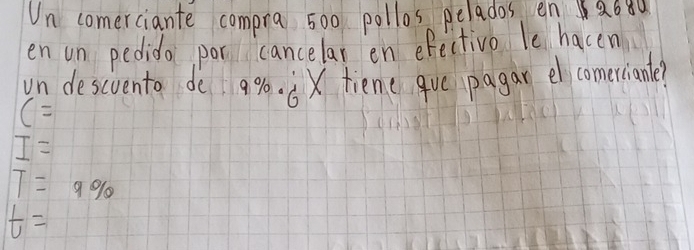 Un comerciante compra 500 pollos pelados en $2680
en un pedido por cancelar en efectivo le hacen
un descuento de 9%. ¿X tiene que pagar el comerciante?
C=
I=
T= 9%
t=